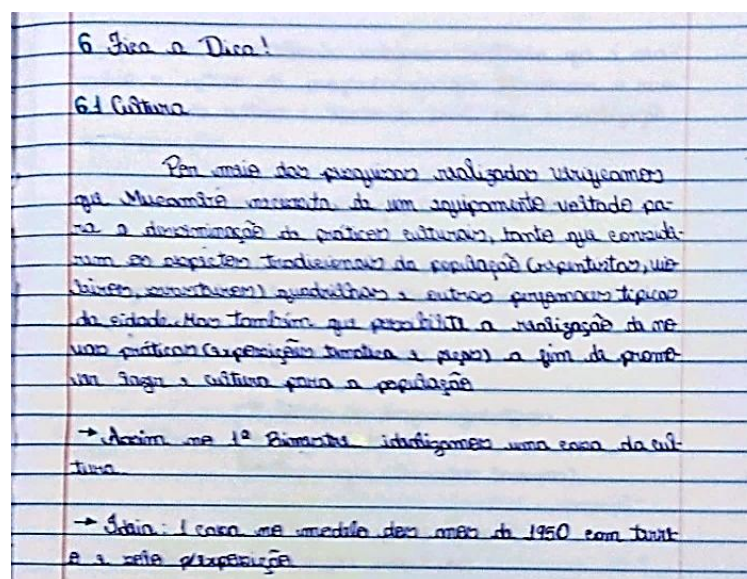 6 Fica a Dica!
6.1 Cultura
Por meio das pesquisas realizadas verificamos
que Mucambo necessita de um equipamento voltado pa-
ra a disseminação de práticas culturais, tanto que conside-
ram os aspectos tradicionais da população (repentistas, vio-
leiros, ) quadrilhas e outras performaces típicas
da cidade. Mas também que possibilita a realização de no
vas práticas (exposições temática e peças) a fim de promo-
ver lazer e cultura para a população
→ Assim no 1º Bimestre idealizamos uma casa da cul-
tura.
→ Ideia: 1 casa no modelo dos anos de 1950 com
e e sala p/exposição